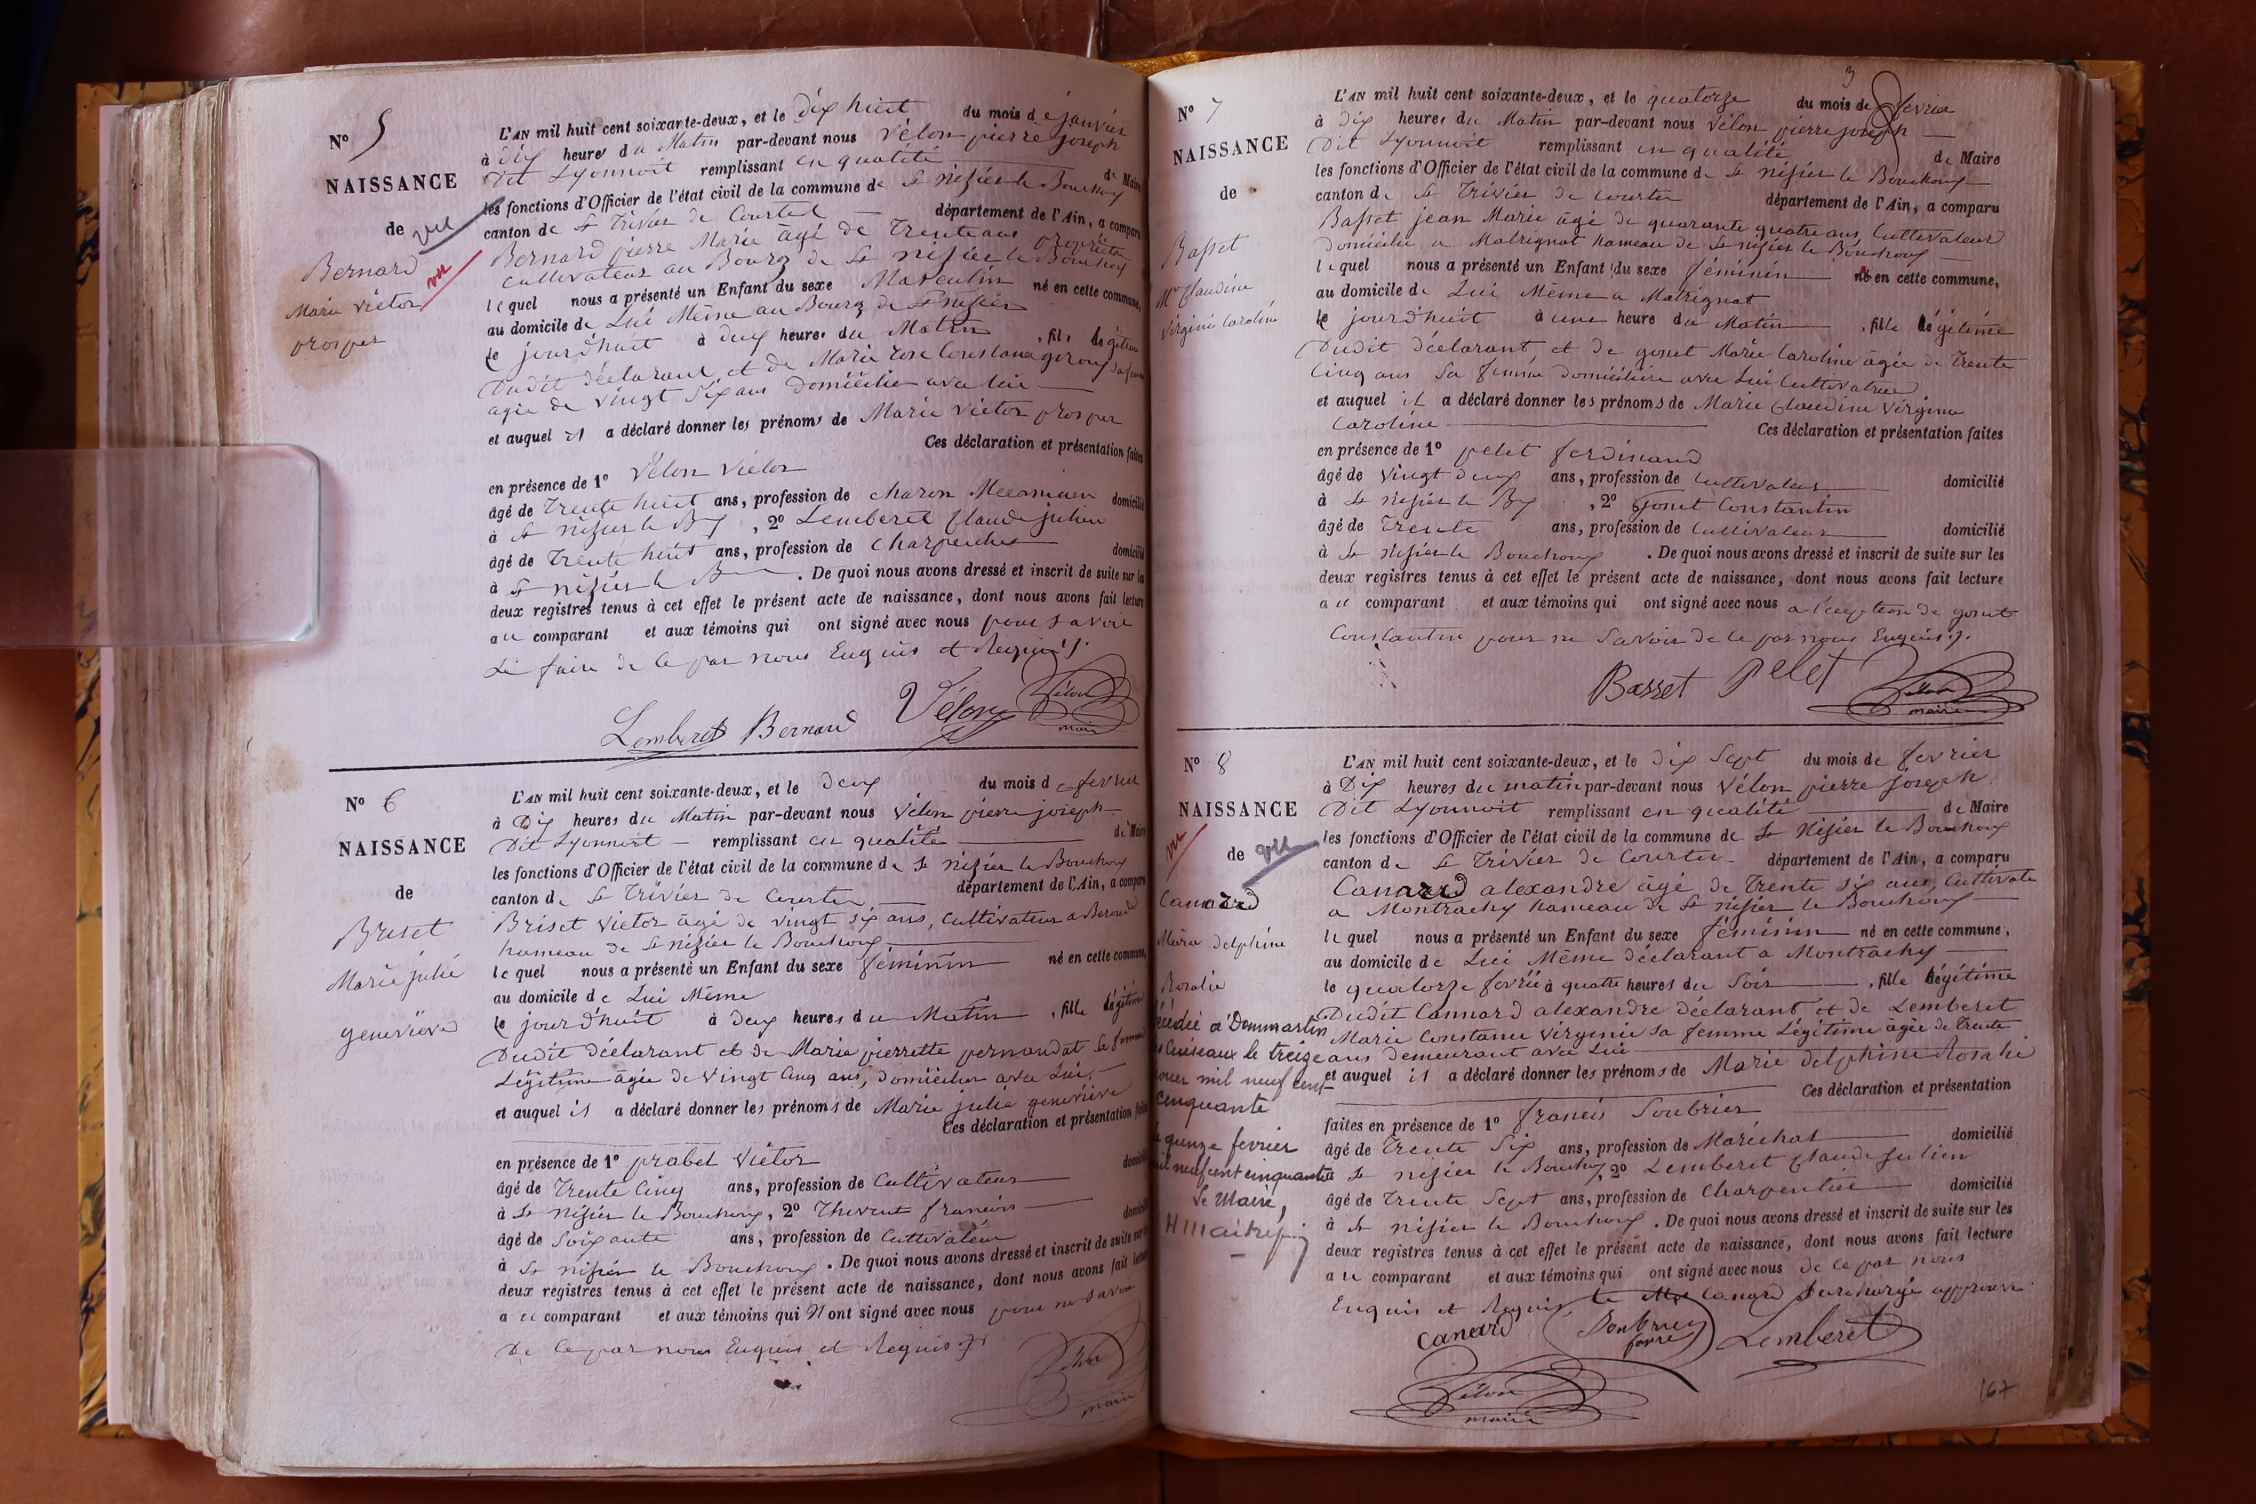 Nº 5
NAISSANCE
de
vu
Bernard
vu
Marie Victor
prosper
L'AN mil huit cent soixante-deux, et le dix huit du mois de janvier
à dix heures du Matin par-devant nous Vélon pierre joseph
Dit Lyonnoit remplissant en qualité de Maire
les fonctions d'Officier de l'état civil de la commune de St nisier le Bouchoux
canton de St Trivier de Courtes département de l'Ain, a comparu
Bernard pierre Marie âgé de Trente ans propriéte
cultivateur au Bourg de St nisier le Bouchoux
lequel nous a présenté un Enfant du sexe Masculin né en cette commune,
au domicile de Lui Même au Bourg de St nisier
le jourd'huit à deux heures du Matin, fils légitime
Dudit déclarant et de Marie rose Constance
agée de vingt Six ans domicilie avec lui
et auquel il a déclaré donner les prénoms de Marie Victor prosper
Ces déclaration et présentation faites
en présence de 1º Vélon Victor
âgé de Trente huit ans, profession de charon Mecanicien domicilié
à St nisier le Bx, 2º Lemberet Claude julien
âgé de Trente huit ans, profession de Charpentier domicilié
à St nisier le Bx. De quoi nous avons dressé et inscrit de suite sur les
deux registres tenus à cet effet le présent acte de naissance, dont nous avons fait lecture
au comparant et aux témoins qui ont signé avec nous pour savoir
Le faire de ce par nous Enquis et Requis
Lemberet Bernard Vélon Vélon
maire
Nº 6
NAISSANCE
de
Briset
Marie julie
geneviève
L'AN mil huit cent soixante-deux, et le deux du mois de fevrier
à Dix heures du Matin par-devant nous Vélon pierre joseph
Dit Lyonnoit remplissant en qualité de Maire
les fonctions d'Officier de l'état civil de la commune de St nisier le Bouchoux
canton de St Trivier de Courtes département de l'Ain, a comparu
Briset Victor âgé de vingt six ans, cultivateur a
hameau de St nisier le Bouchoux
lequel nous a présenté un Enfant du sexe féminin né en cette commune,
au domicile de Lui Même
le jourd'huit à deux heures du Matin, fille légitime
Dudit déclarant et de Marie pierrette pernandat Sa femme
Légitime âgée de vingt Cinq ans, domicilier avec Lui
et auquel il a déclaré donner les prénoms de Marie julie geneviève
Ces déclaration et présentation faites
en présence de 1º prabel Victor
âgé de Trente Cinq ans, profession de Cultivateur domicilié
à St nisier le Bouchoux, 2º Thevent francois
âgé de Soixante ans, profession de Cultivateur domicilié
à St nisier le Bouchoux. De quoi nous avons dressé et inscrit de suite sur les
deux registres tenus à cet effet le présent acte de naissance, dont nous avons fait lecture
au comparant et aux témoins qui n'ont signé avec nous pour ne savoir
De ce par nous Enquis et Requis
Vélon
maire
3
Nº 7
NAISSANCE
de
Basset
Mie Claudine
Virginie Caroline
L'AN mil huit cent soixante-deux, et le quatorze du mois de fevrier
à Dix heures du Matin par-devant nous Vélon pierre joseph
Dit Lyonnoit remplissant en qualité de Maire
les fonctions d'Officier de l'état civil de la commune de St nisier le Bouchoux
canton de St Trivier de Courtes département de l'Ain, a comparu
Basset jean Marie âgé de quarante quatre ans Cultivateur
domicilie a Matrignat hameau de St nisier le Bouchoux
lequel nous a présenté un Enfant du sexe féminin né en cette commune,
au domicile de Lui Même a Matrignat
le jourd'huit à une heure du Matin, fille légitime
Dudit déclarant, et de gonet Marie Caroline âgée de Trente
Cinq ans Sa femme domiciliée avec Lui Cultivatrice
et auquel il a déclaré donner les prénoms de Marie Claudine Virginie
Caroline Ces déclaration et présentation faites
en présence de 1º pelet ferdinand
âgé de Vingt deux ans, profession de Cultivateur domicilié
à St nisier le Bx, 2º gonet Constantin
âgé de Trente ans, profession de Cultivateur domicilié
à St nisier le Bouchoux. De quoi nous avons dressé et inscrit de suite sur les
deux registres tenus à cet effet le présent acte de naissance, dont nous avons fait lecture
au comparant et aux témoins qui ont signé avec nous a l'exeption de gonet
Constantin pour ne Savoir de ce par nous Enquis
Basset Pelet Vélon
maire
Nº 8
NAISSANCE
vu
de
vu
Canard
Marie delphine
Rosalie
décédée à Dommartin
les Cuiseaux le treize
mil neuf cent
cinquante
Le quinze fevrier
mil neuf cent cinquante
Le Maire,
L'AN mil huit cent soixante-deux, et le dix Sept du mois de fevrier
à Dix heures du matin par-devant nous Vélon pierre joseph
Dit Lyonnoit remplissant en qualité de Maire
les fonctions d'Officier de l'état civil de la commune de St Nisier le Bouchoux
canton de St Trivier de Courtes département de l'Ain, a comparu
Canard alexandre âgé de Trente six ans, Cultivate
a Montrachy hameau de St nisier le Bouchoux
lequel nous a présenté un Enfant du sexe féminin né en cette commune,
au domicile de Lui Même déclarant a Montrachy
le quatorze fevrier à quatre heures du Soir, fille légitime
Dudit Cannard alexandre déclarant et de Lemberet
Marie Constance Virginie Sa femme Légitime âgée de Trente
ans demeurant avec Lui
et auquel il a déclaré donner les prénoms de Marie delphine Rosalie
Ces déclaration et présentation
faites en présence de 1º francis Soubrier
âgé de Trente Six ans, profession de Maréchal domicilié
à St nisier le Bouchoux, 2º Lemberet Claude Julien
âgé de Trente Sept ans, profession de Charpentier domicilié
à St nisier le Bouchoux. De quoi nous avons dressé et inscrit de suite sur les
deux registres tenus à cet effet le présent acte de naissance, dont nous avons fait lecture
au comparant et aux témoins qui ont signé avec nous de ce par nous
Enquis et Requis, le Mot Canard Surchargé approuvé
Canard Soubrier Lemberet
Vélon
maire
167